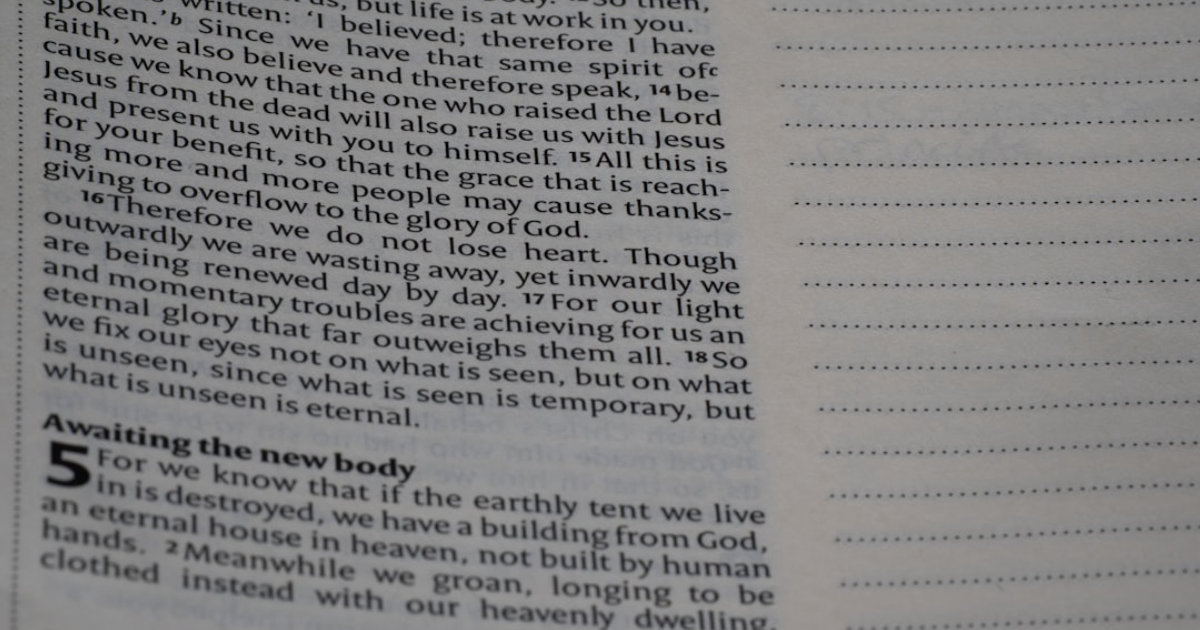 So then,
us, but life is at work in you.
written: 'I believed; therefore I have
spoken.'b Since we have that same spirit ofc
faith, we also believe and therefore speak, 14 be-
cause we know that the one who raised the Lord
Jesus from the dead will also raise us with Jesus
and present us with you to himself. 15 All this is
for your benefit, so that the grace that is reach-
ing more and more people may cause thanks-
giving to overflow to the glory of God.
16 Therefore we do not lose heart. Though
outwardly we are wasting away, yet inwardly we
are being renewed day by day. 17 For our light
and momentary troubles are achieving for us an
eternal glory that far outweighs them all. 18 So
we fix our eyes not on what is seen, but on what
is unseen, since what is seen is temporary, but
what is unseen is eternal.
Awaiting the new body
5 For we know that if the earthly tent we live
in is destroyed, we have a building from God,
an eternal house in heaven, not built by human
hands. 2 Meanwhile we groan, longing to be
clothed instead with our heavenly dwelling,